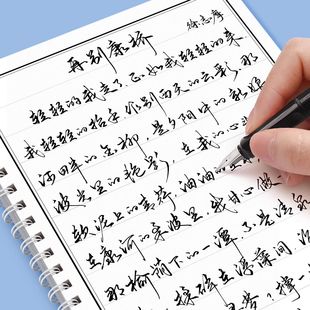 再别康桥
徐志摩
轻轻的我走了 正如我轻轻的来
我轻轻的招手 作别西天的云彩 那
河畔的金柳 是夕阳中的新娘
波光里的艳影 在我的心头
软泥上的青荇 油油的
在康河的柔波里 我甘心做一
那榆荫下的一潭 不是清泉
揉碎在浮藻间 沉
寻梦？撑一